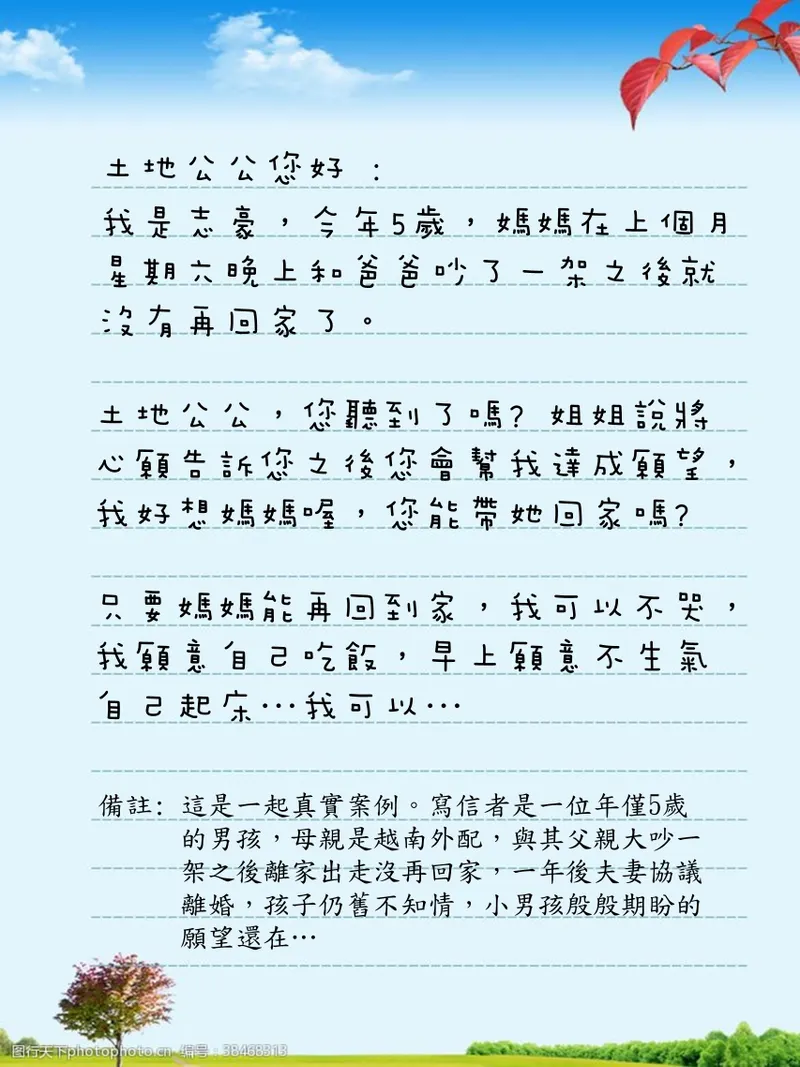 土地公公您好：
我是志豪，今年5歲，媽媽在上個月
星期六晚上和爸爸吵了一架之後就
沒有再回家了。
土地公公，您聽到了嗎？姐姐說將
心願告訴您之後您會幫我達成願望，
我好想媽媽喔，您能帶她回家嗎？
只要媽媽能再回到家，我可以不哭，
我願意自己吃飯，早上願意不生氣
自己起床…我可以…
備註：這是一起真實案例。寫信者是一位年僅5歲
的男孩，母親是越南外配，與其父親大吵一
架之後離家出走沒再回家，一年後夫妻協議
離婚，孩子仍舊不知情，小男孩殷殷期盼的
願望還在…
图行天下photophoto.cn 编号：38468313